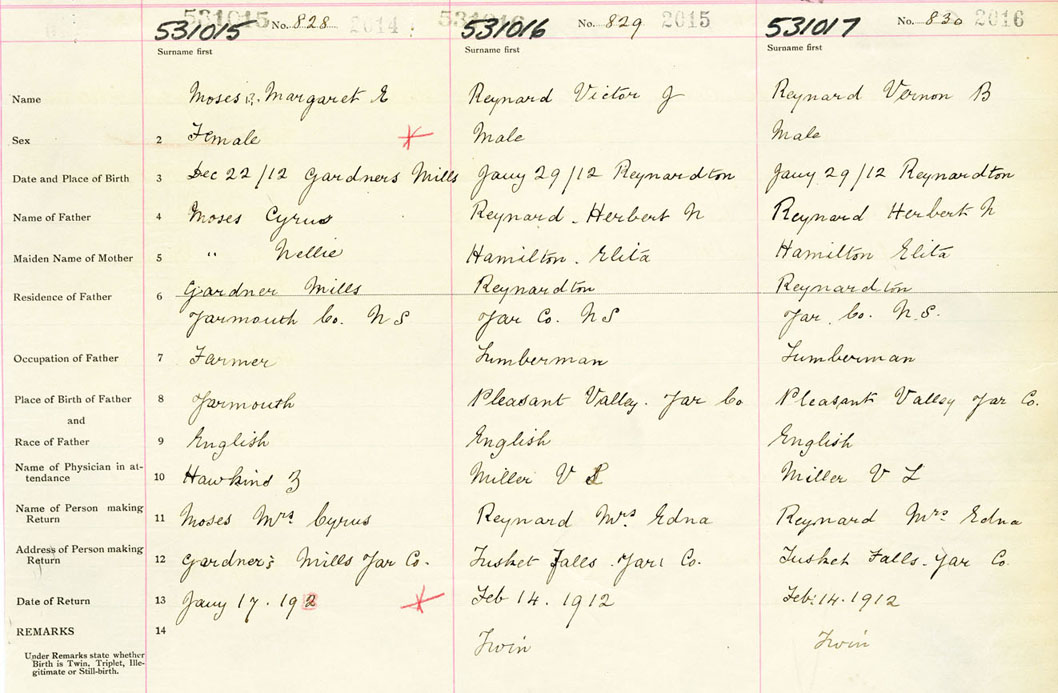 531015 No. 828 2014 531016 No. 829 2015 531017 No. 830 2016
Surname first Surname first Surname first
Name Moses Margaret E Reynard Victor J Reynard Vernon B
Sex 2 Female Male Male
Date and Place of Birth 3 Dec 22/12 Gardners Mills Jany 29/12 Reynardton Jany 29/12 Reynardton
Name of Father 4 Moses Cyrus Reynard. Herbert N Reynard Herbert N
Maiden Name of Mother 5 " Nellie Hamilton. Elita Hamilton Elita
Residence of Father 6 Gardner Mills Reynardton Reynardton
Yarmouth Co. N S Yar Co. N S Yar. Co. N. S.
Occupation of Father 7 Farmer Lumberman Lumberman
Place of Birth of Father 8 Yarmouth Pleasant Valley. Yar Co Pleasant Valley Yar Co.
and
Race of Father 9 English English English
Name of Physician in at-
tendance 10 Hawkins Z Miller V L Miller V L
Name of Person making
Return 11 Moses Mrs Cyrus Reynard Mrs Edna Reynard Mrs Edna
Address of Person making
Return 12 Gardners Mills Yar Co. Tusket Falls. Yar Co. Tusket Falls. Yar Co.
Date of Return 13 Jany 17. 192 Feb 14. 1912 Feb. 14. 1912
REMARKS 14 Twin Twin
Under Remarks state whether
Birth is Twin, Triplet, Ille-
gitimate or Still-birth.